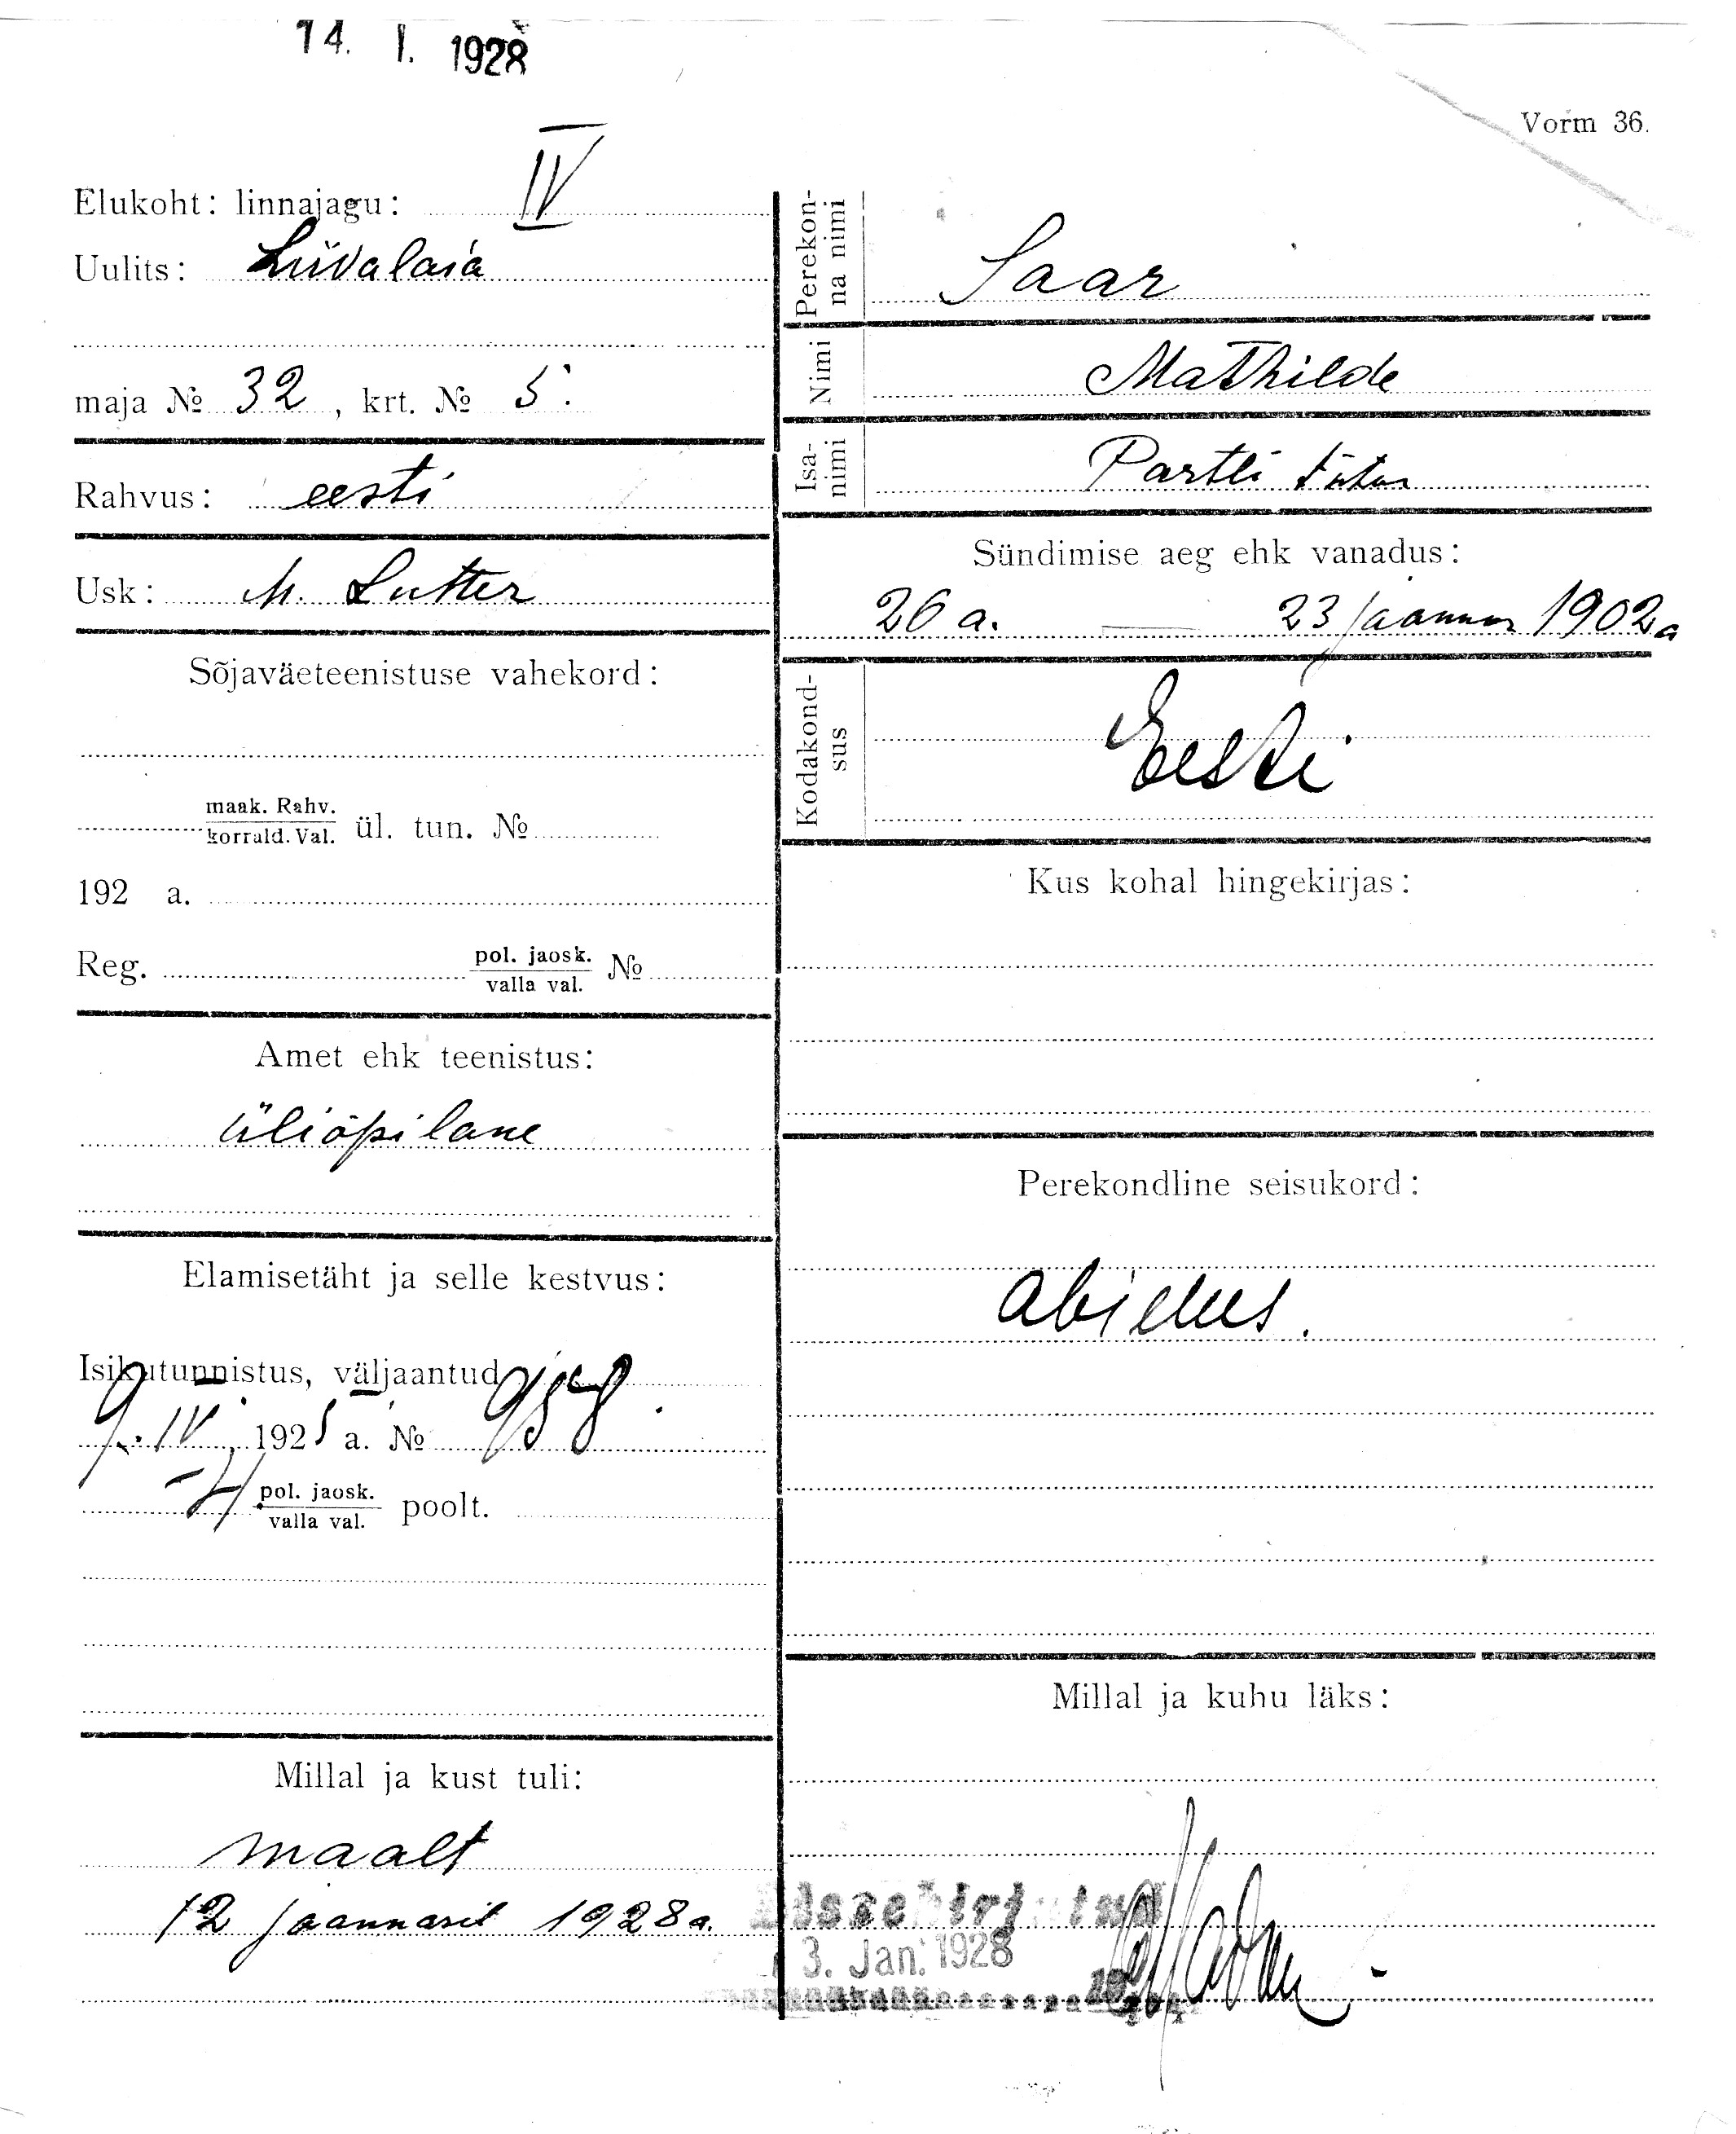 14. I. 1928
Vorm 36.
Elukoht: linnajagu: IV
Uulits: Liivalaia
maja № 32, krt. № 5.
Rahvus: eesti
Usk: M. Lutter
Sõjaväeteenistuse vahekord:
maak. Rahv.
korrald. Val. ül. tun. №
192 a.
Reg. pol. jaosk. №
valla val.
Amet ehk teenistus:
üliõpilane
Elamisetäht ja selle kestvus:
Isikutunnistus, väljaantud
9. IV, 1925 a. № 958.
pol. jaosk. poolt.
valla val.
Millal ja kust tuli:
maalt
12 jaanuaril 1928 a.
Perekon-
na nimi
Saar
Nimi
Mathilde
Isa-
nimi
Partli tütar
Sündimise aeg ehk vanadus:
26 a. — 23 jaanuar 1902 a
Kodakond-
sus
Eesti
Kus kohal hingekirjas:
Perekondline seisukord:
abielus.
Millal ja kuhu läks:
Sissekirjutud
3. Jan. 1928